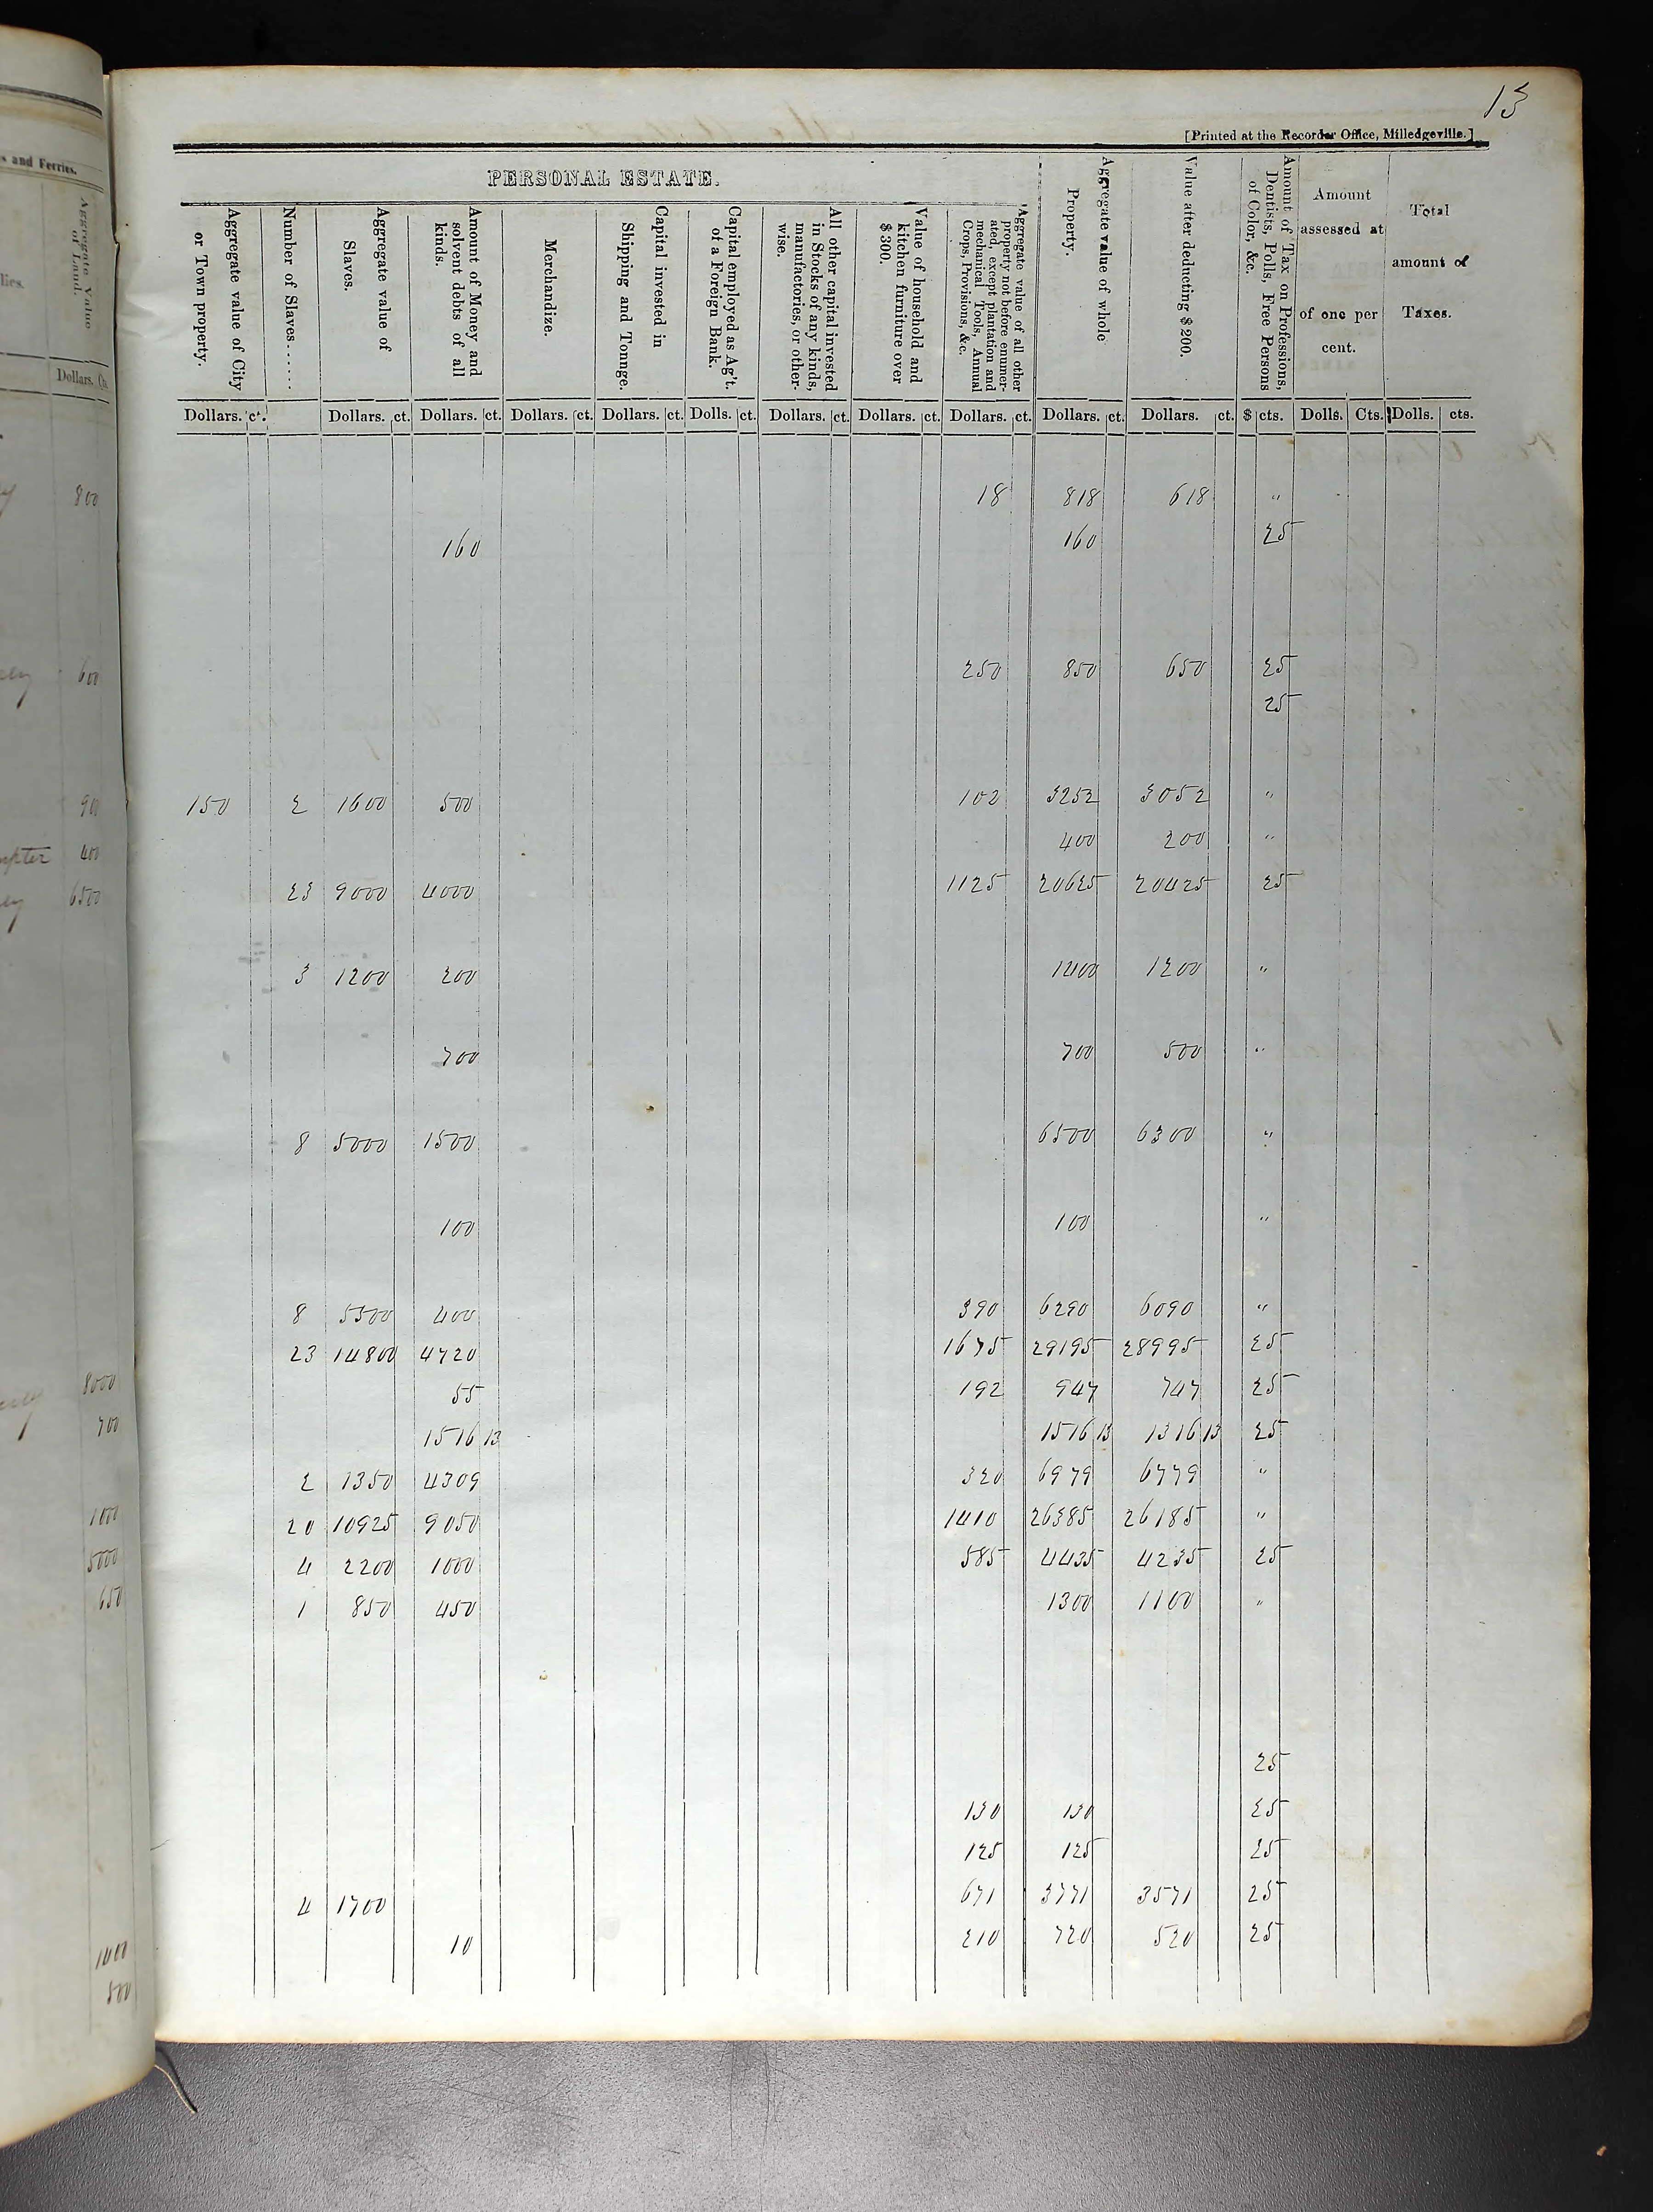 13
[Printed at the Recorder Office, Milledgeville.]
s and Ferries.
Aggregate Value of Land.
lies.
Dollars. Cts.
PERSONAL ESTATE.
Aggregate value of City or Town property.
Number of Slaves......
Aggregate value of Slaves.
Amount of Money and solvent debts of all kinds.
Merchandize.
Capital invested in Shipping and Tonnge.
Capital employed as Ag't. of a Foreign Bank.
All other capital invested in Stocks of any kinds, manufactories, or otherwise.
Value of household and kitchen furniture over $300.
Aggregate value of all other property not before enumerated, except plantation and mechanical Tools, Annual Crops, Provisions, &c.
Aggregate value of whole Property.
Value after deducting $200.
Amount of Tax on Professions, Dentists, Polls, Free Persons of Color, &c.
Amount assessed at of one per cent.
Total amount of Taxes.
Dollars. ct. Dollars. ct. Dollars. ct. Dollars. ct. Dollars. ct. Dolls. ct. Dollars. ct. Dollars. ct. Dollars. ct. Dollars. ct. Dollars. ct. $ cts. Dolls. Cts. Dolls. cts.
800 18 818 618 "
160 160 25
600 250 850 650 25
25
900 150 2 1600 500 102 3252 3052 "
400 400 200 "
6500 23 9000 4000 1125 20625 20425 25
3 1200 200 1400 1200 "
700 700 500 "
8 5000 1500 6500 6300 "
100 100 "
8 5500 400 390 6290 6090 "
8000 23 14800 4720 1675 29195 28995 25
700 55 192 947 747 25
1516 13 1516 13 1316 13 25
1000 2 1350 4309 320 6979 6779 "
5000 20 10925 9050 1410 26385 26185 "
650 4 2200 1000 585 4435 4235 25
1 850 450 1300 1100 "
25
130 130 25
125 125 25
1400 4 1700 671 3771 3571 25
500 10 210 720 520 25